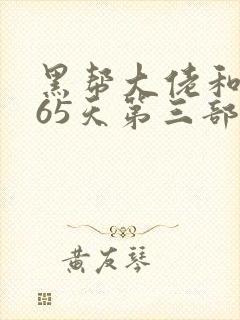 黑帮大佬和
65天第三部
黄友琴